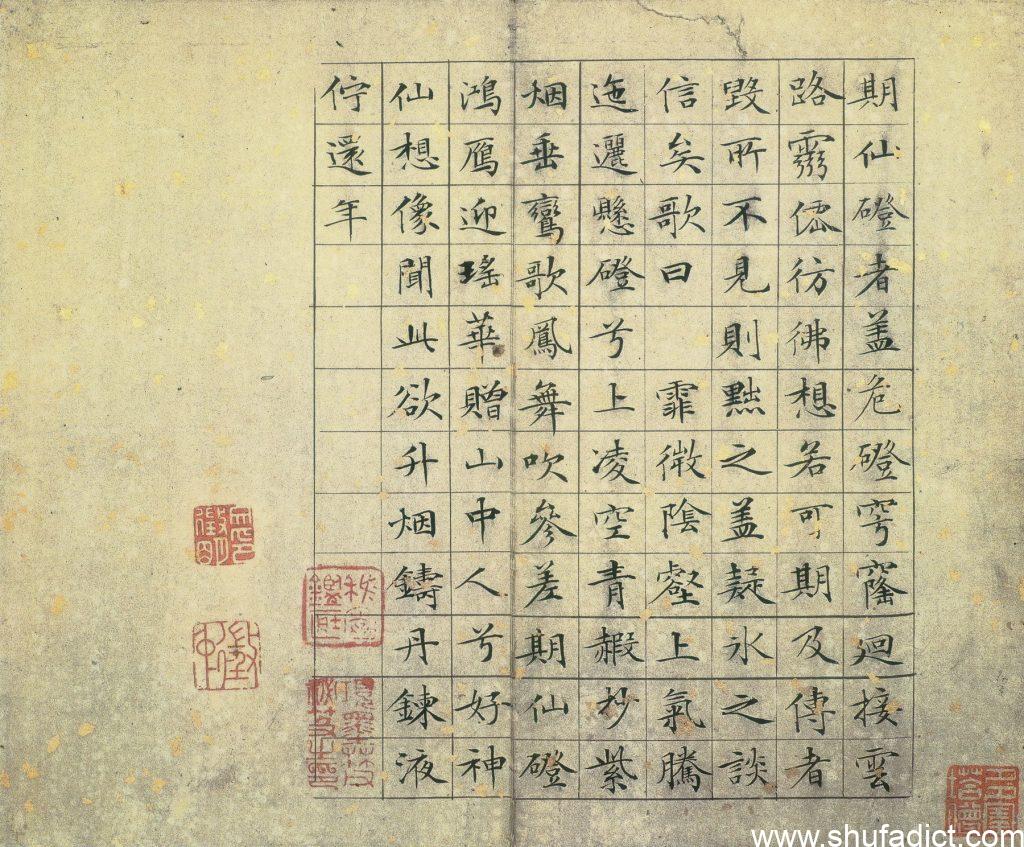 期仙磴者盖危磴穹窿迴接雲
路靈仙彷彿想若可期及傳者
毀所不見則黜之盖疑氷之談
信矣歌曰 霏微陰壑上氣騰
迤邐懸磴兮上凌空青赮杪紫
烟垂鸞歌鳳舞吹參差期仙磴
鴻鴈迎瑤華贈山中人兮好神
仙想像聞此欲升烟鑄丹鍊液
佇還年
www.shufadict.com